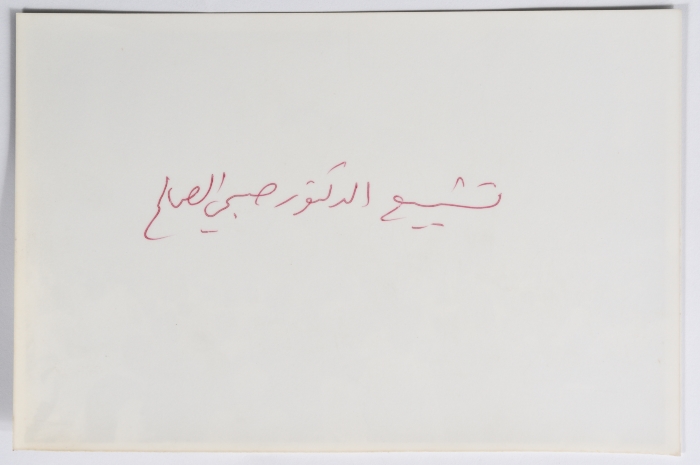 تشييع الدكتور صبحي الصالح